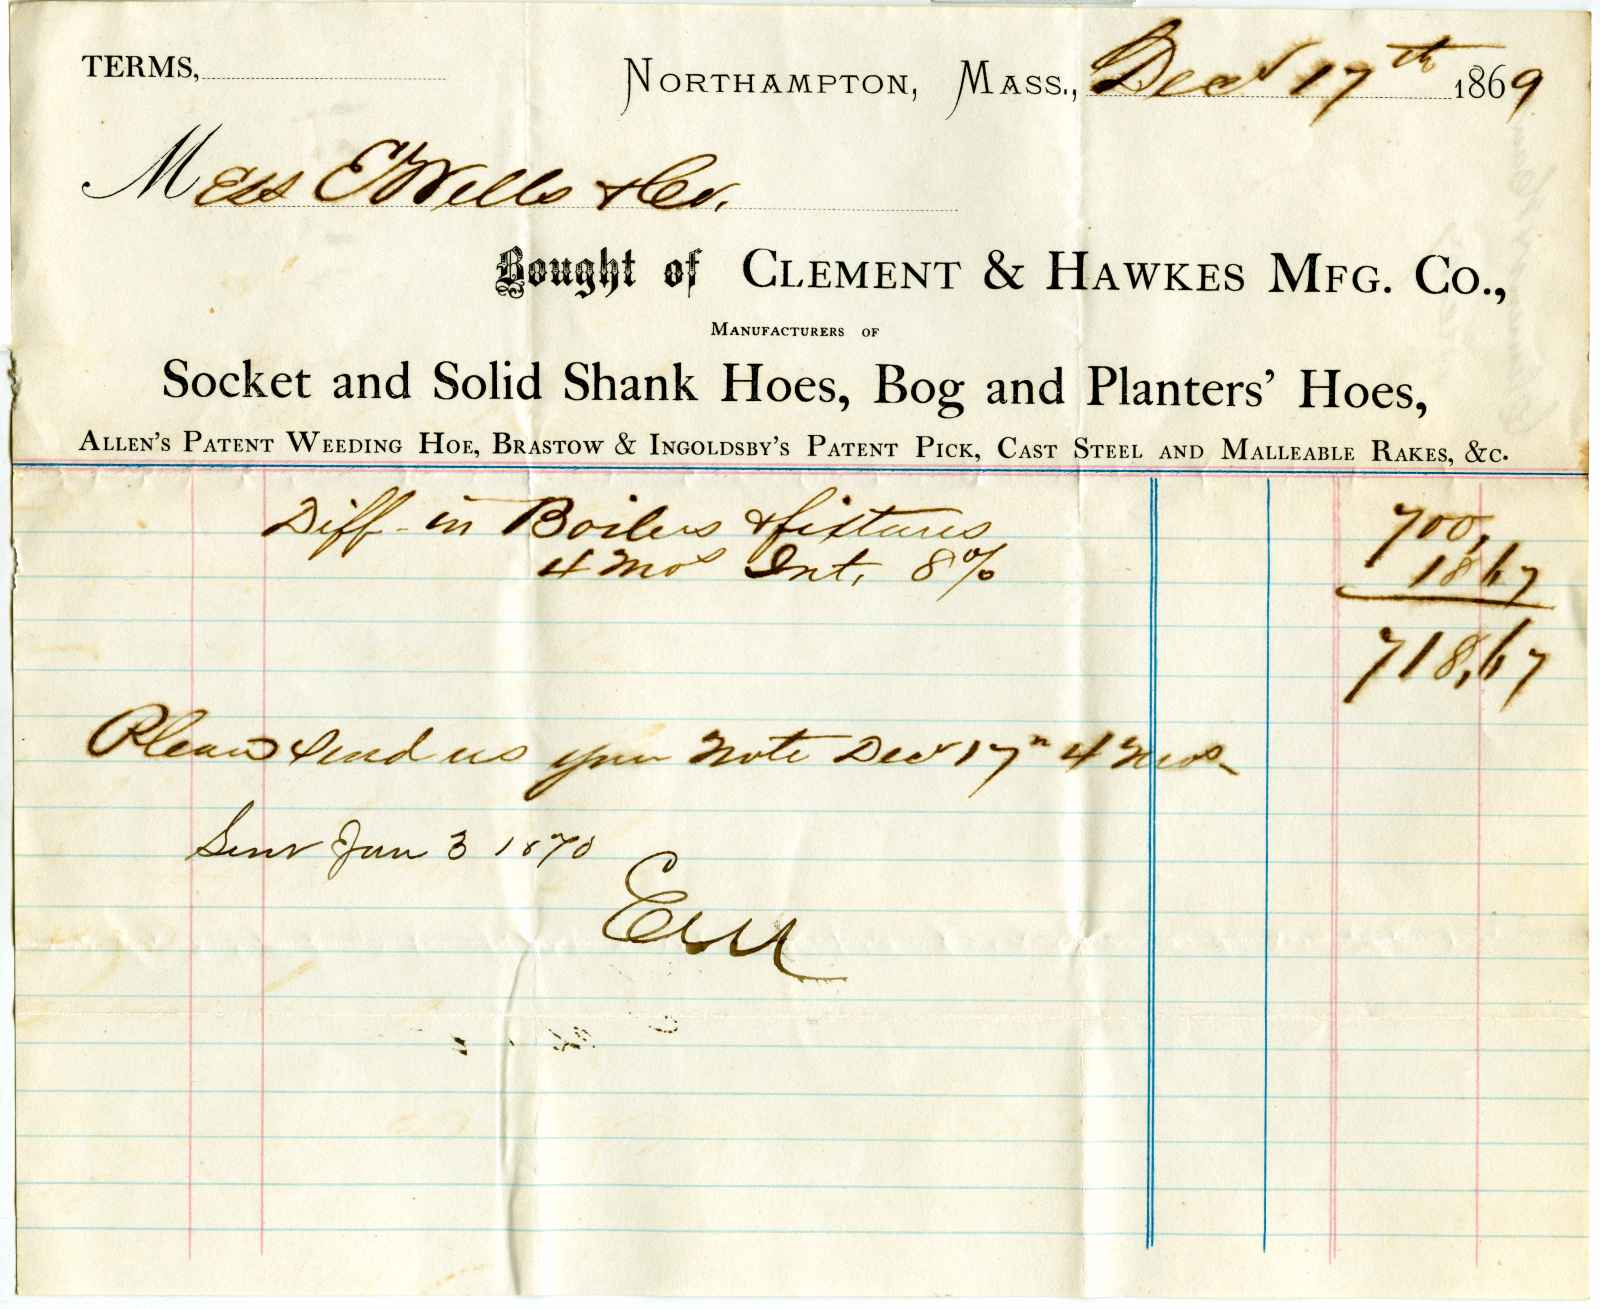 TERMS,
Northampton, Mass., Decr 17th 1869
Mess E Wells & Co.
Bought of Clement & Hawkes Mfg. Co.,
Manufacturers of
Socket and Solid Shank Hoes, Bog and Planters' Hoes,
Allen's Patent Weeding Hoe, Brastow & Ingoldsby's Patent Pick, Cast Steel and Malleable Rakes, &c.
Diff - in Boilers & fixtures 700,
4 Mos Int, 8% 18 67
718,67
Please send us your Note Decr 17th 4 Mos-
Sent Jan 3 1870